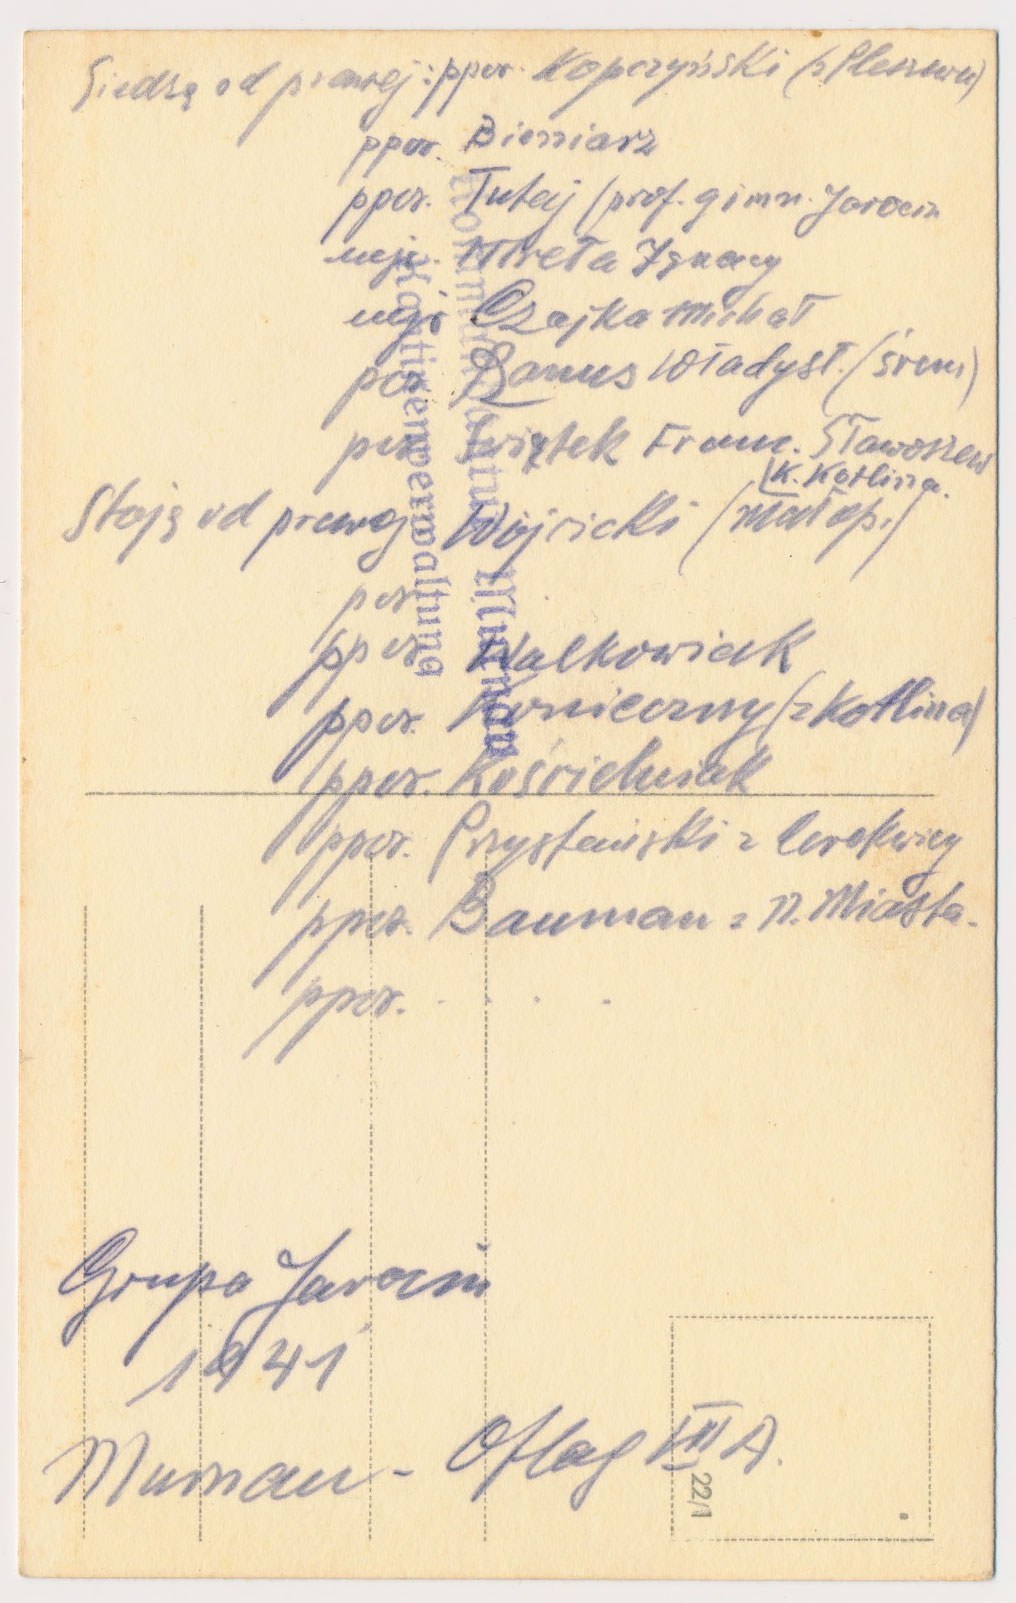 Siedzą od prawej: ppor. Kopczyński (z Pleszewa)
ppor. Bieniarz
ppor. Tutaj (prof. gimn. Jarocin
Mreła Ignacy
Czajka Michał
por. Banus Władysł. (Śrem)
por. Świątek Franc. Sławoszew
k. Kotlina.
Stoją od prawej Wójcicki (Małop.)
por.
ppor. Walkowiak
ppor. Konieczny (z Kotlina)
ppor. Kościelniak
ppor. Przystański z Cerekwicy
ppor. Bauman z N. Miasta.
ppor. . . .
Kommandantur Murnau
Kantinenverwaltung
Grupa Jarocin
1941
Murnau - Oflag VII A.
22/1